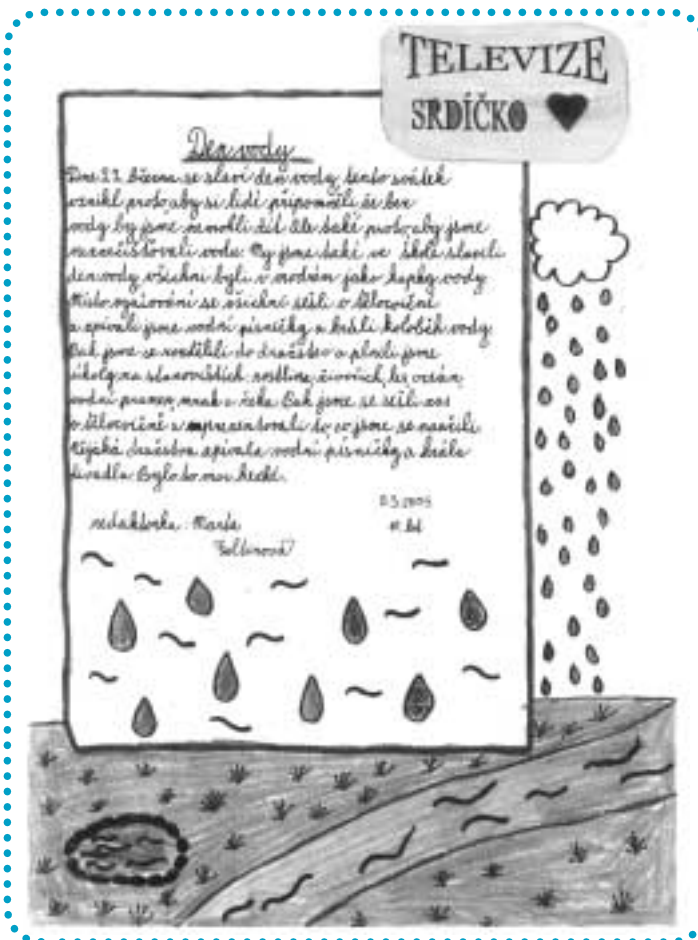 TELEVIZE
SRDÍČKO
Den vody
Dne 22. března se slaví den vody tento svátek
vznikl proto aby si lidé připomněli že bez
vody by jsme nemohli žít Ale také proto aby jsme
neznečišťovali vodu My jsme také ve škole slavili
den vody všichni byli v modrém jako kapky vody
Místo vyučování se všichni sešli v tělocvičně
a zpívali jsme vodní písničky a hráli koloběh vody
Pak jsme se rozdělili do družstev a plnili jsme
úkoly na stanovištích rostlina, živočich, les, oceán,
vodní pramen, mrak a řeka Pak jsme se sešli zas
v tělocvičně a reprezentovali to co jsme se naučili
Nějaká družstva zpívala vodní písničky a hrála
divadla Bylo to moc hezké.
redaktorka: Marta